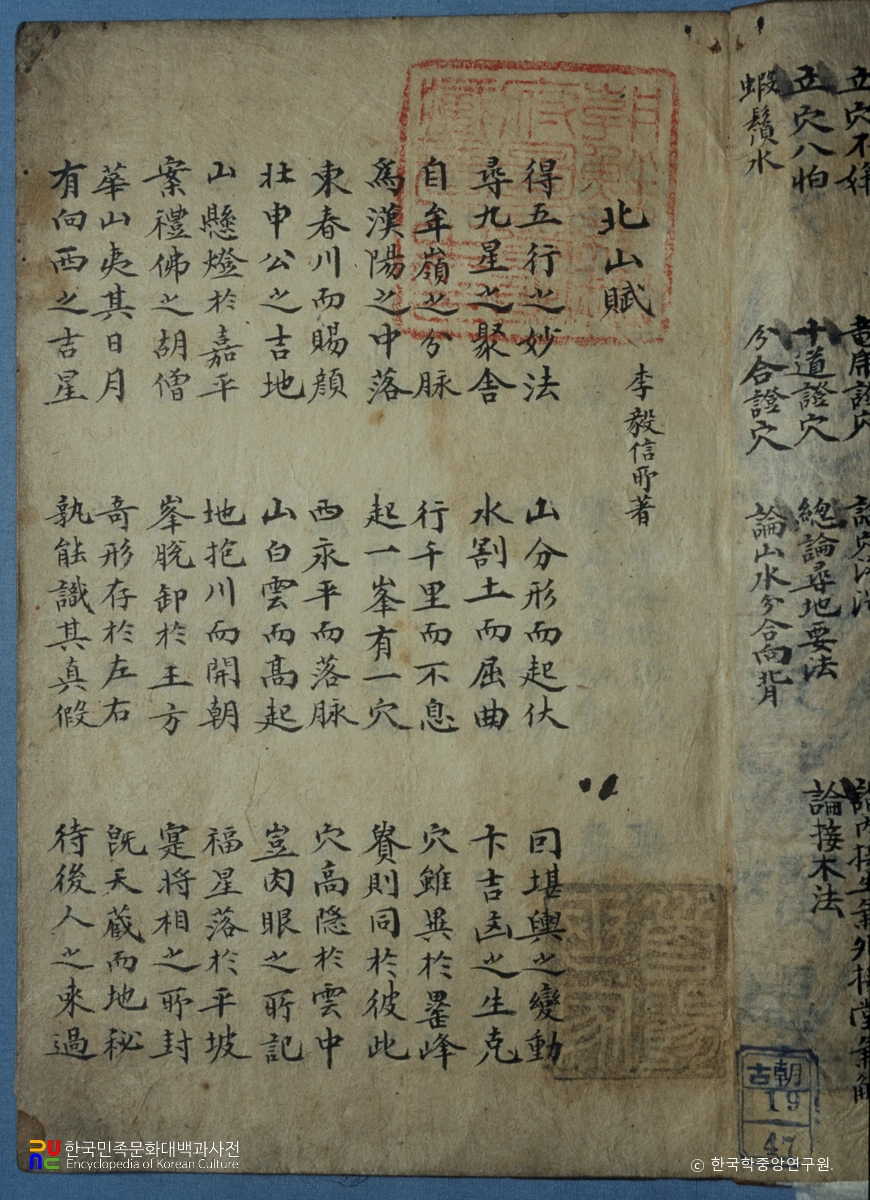 立穴八怕 十道證穴 總論尋地要法 論接木法
蝦鬚水 分合證穴 論山水分合向背
北山賦 李毅信所著
得五行之妙法 山分形而起伏 囙堪輿之變動
尋九星之聚舍 水割土而屈曲 卞吉凶之生克
自牟嶺之分脉 行千里而不息 穴雖異於峰
爲漢陽之中落 起一峯有一穴 則同於彼此
東春川而賜顔 西永平而落脉 穴高隐於雲中
壯申公之吉地 山白雲而高起 豈肉眼之所記
山懸燈於嘉平 地抱川而開朝 福星落於平坡
案禮佛之胡僧 峯脫卸於王方 寔將相之所封
華山夷其日月 奇形存於左右 既天蔵而地秘
有向西之吉星 孰能識其真假 待後人之来過
古朝
19
47
한국민족문화대백과사전
Encyclopedia of Korean Culture
© 한국학중앙연구원